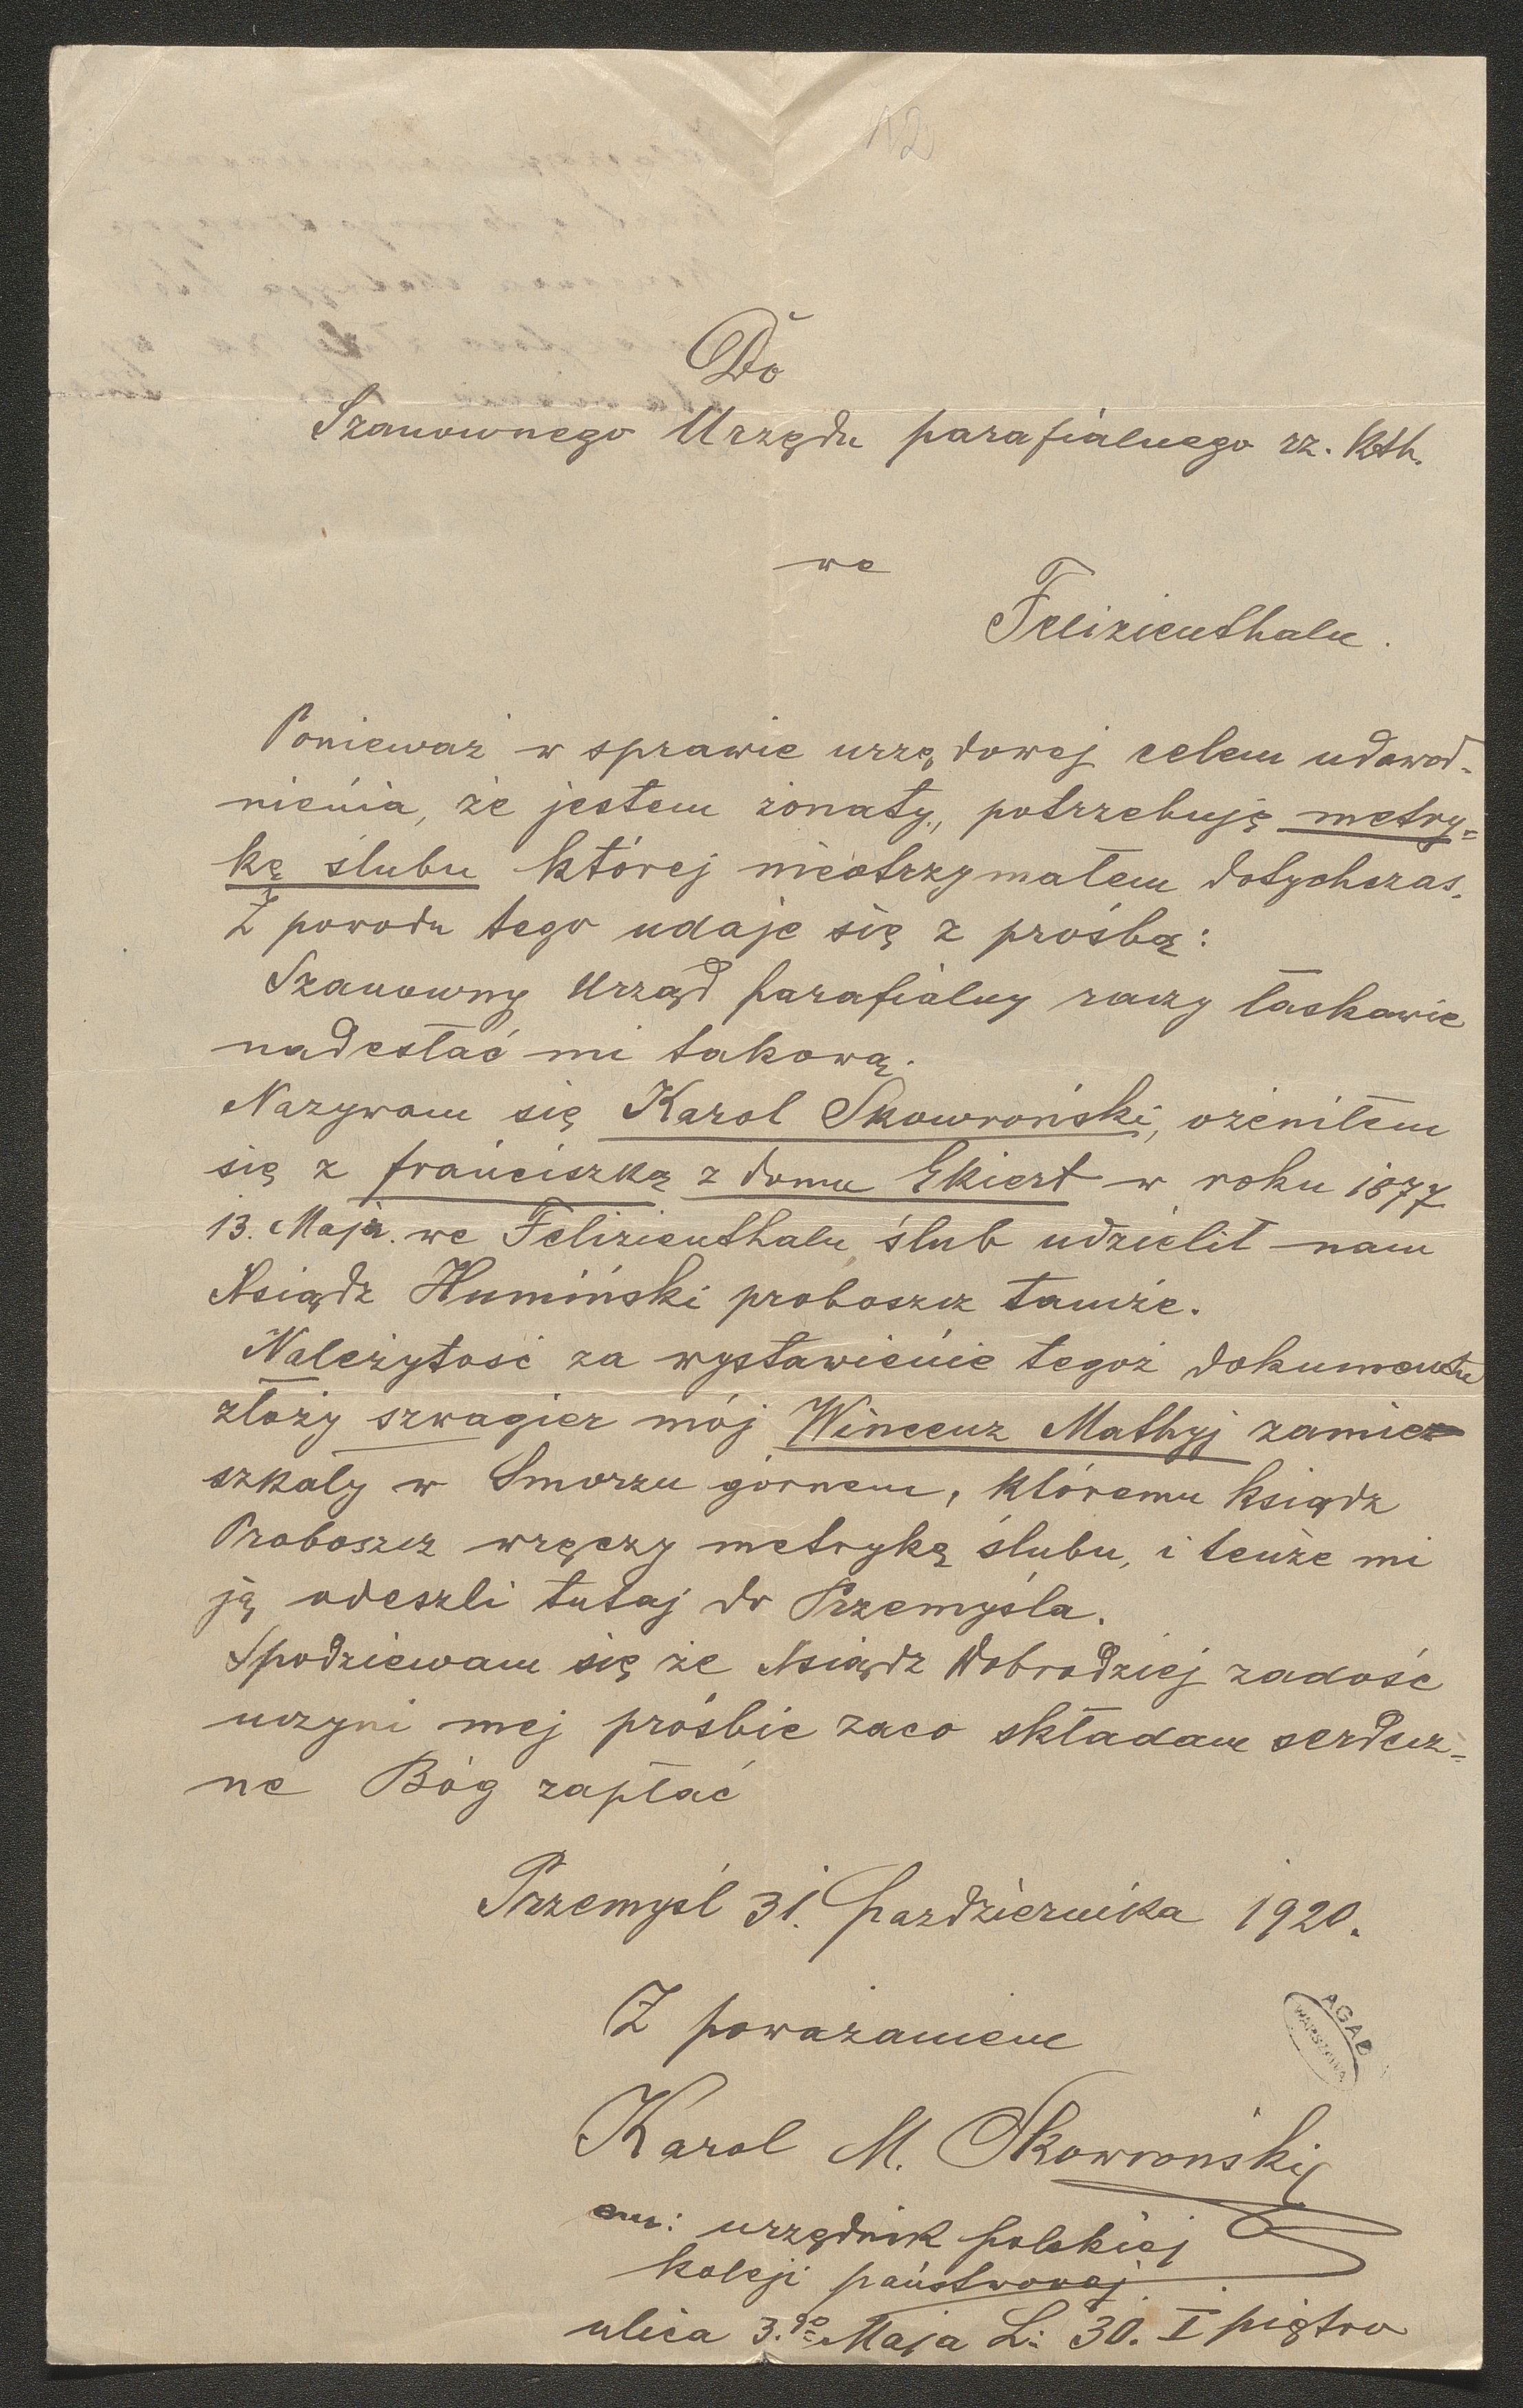 12
Do
Szanownego Urzędu parafialnego rz. kth.
we
Felizienthalu.
Ponieważ w sprawie urzędowej celem udowod-
nienia, że jestem żonaty, potrzebuję metry=
kę ślubu której nieotrzymałem dotychczas.
Z powodu tego udaje się z prośbą:
Szanowny Urząd parafialny raczy łaskawie
nadesłać mi takową.
Nazywam się Karol Skowroński, ożeniłem
się z franciszką z domu Ekiert w roku 1877
13. Maja. we Felizienthalu, ślub udzielił nam
Ksiądz Humiński proboszcz tamże.
Należytość za wystawienie tegoż dokumentu
złoży szwagier mój Wincenz Mathyj zamie
szkały w Smorzu górnem, któremu ksiądz
Proboszcz wręczy metrykę ślubu, i tenże mi
ją odeszli tutaj do Przemyśla.
Spodziewam się że Ksiądz Dobrodziej zadość
uczyni mej prośbie zaco składam serdecz=
ne Bóg zapłać
Przemyśl 31. Października 1920.
Z poważaniem
AGAD
WARSZAWA
Karol M. Skowroński
em: urzędnik polskiej
koleji państwowej
ulica 3.go Maja L: 30. I piętro